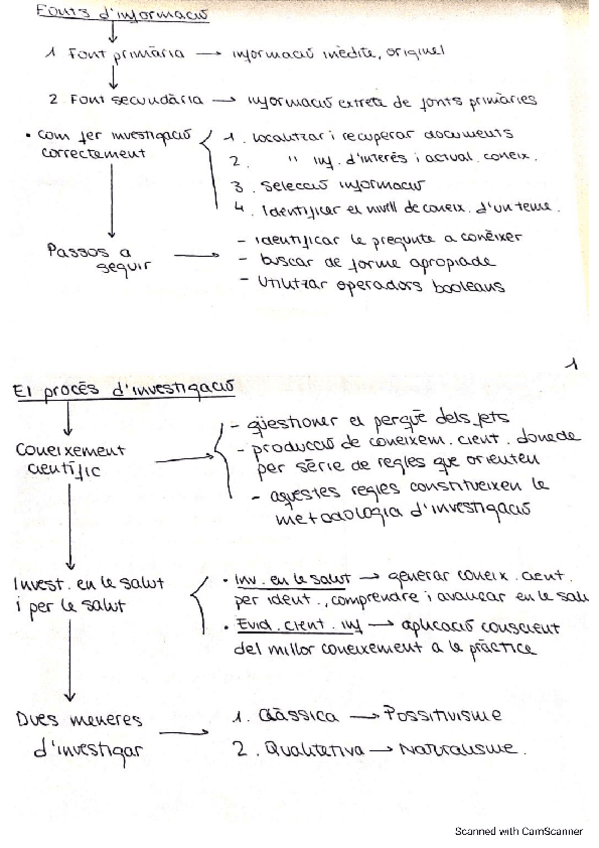 Fonts d'informació
1 Font primària → informació inèdita, original
2. Font secundària → informació extreta de fonts primàries
• Com fer investigació correctement
1. Localitzar i recuperar documents
2. " inf. d'interès i actual. coneix.
3. Selecció informació
4. Identificar el nivell de coneix. d'un tema.
Passos a seguir →
- identificar la pregunta a conèixer
- buscar de forma apropiada
- Utilitzar operadors booleans
1
El procés d'investigació
Coneixement científic →
- qüestionar el perquè dels fets
- producció de coneixem. cient. donada
per sèrie de regles que orienten
- aquestes regles constitueixen la
metodologia d'investigació
Invest. en la salut
i per la salut
• Inv. en la salut → generar coneix. cient.
per ident., comprendre i avançar en la salu
• Evid. cient. inf → aplicació conscient
del millor coneixement a la pràctica
Dues maneres
d'investigar →
1. Clàssica → Possitivisme
2. Qualitativa → Narralisme.
Scanned with CamScanner